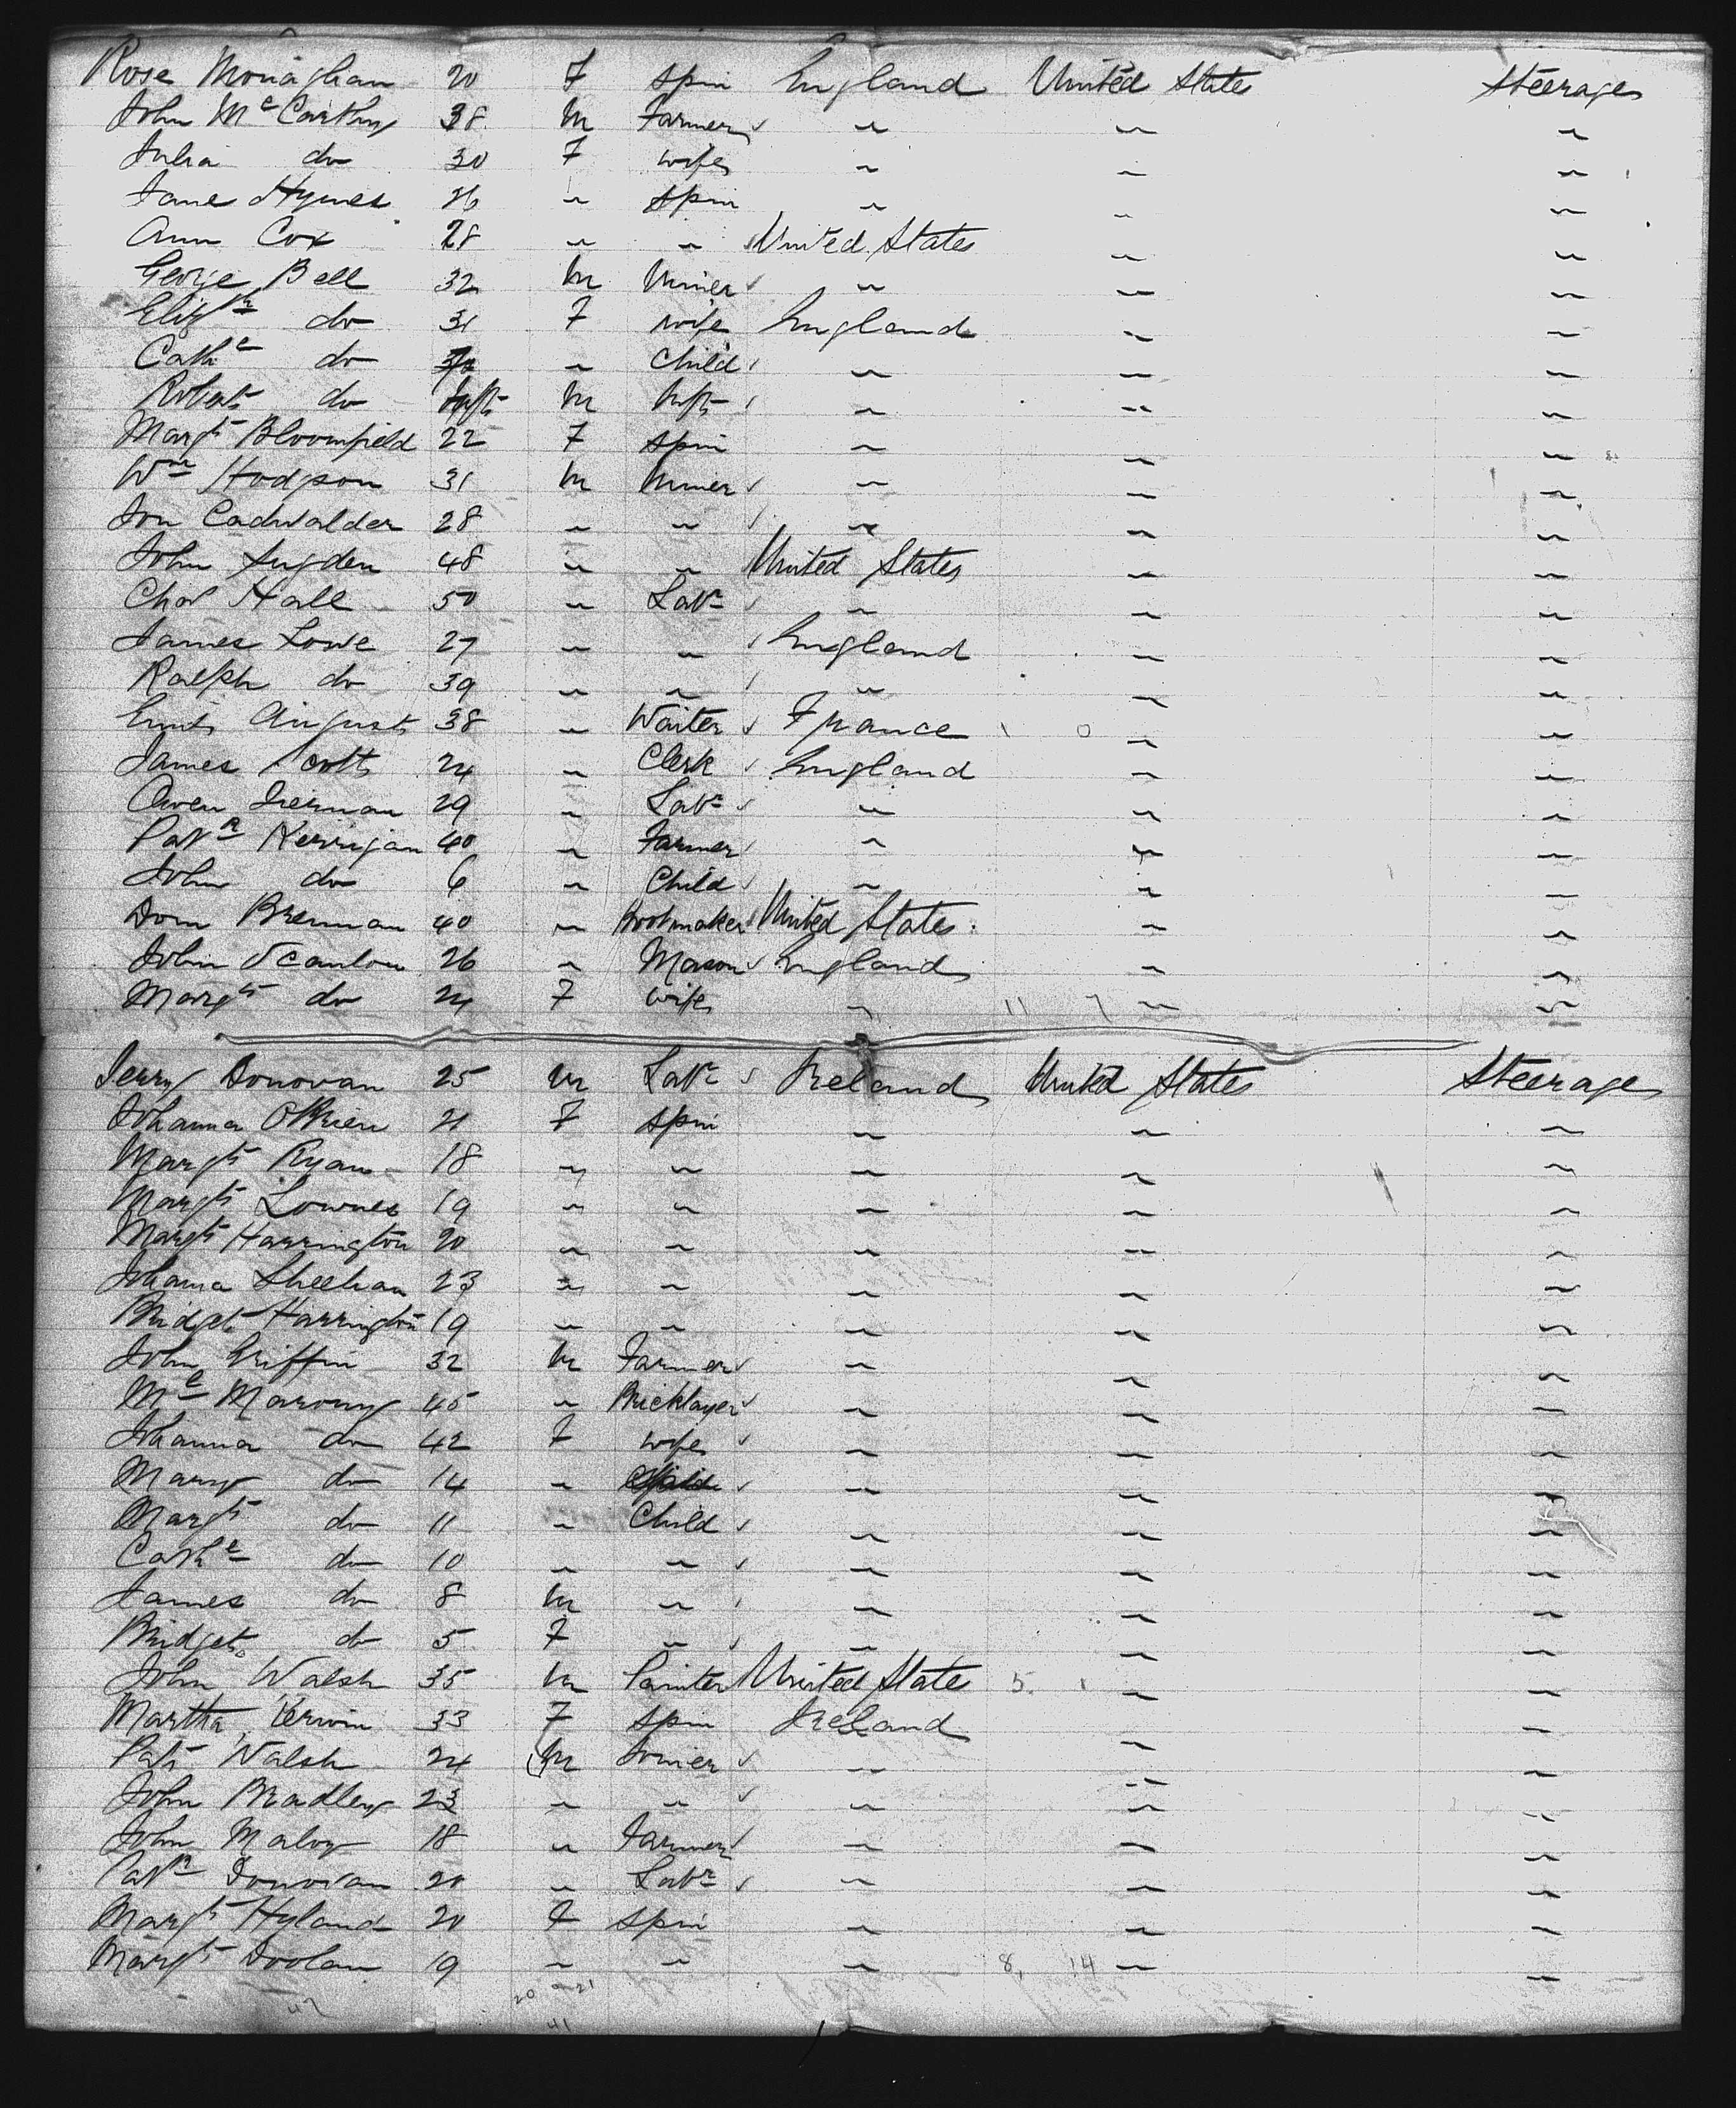 Rose Monaghan 20 F Spin England United States Steerage
John McCarthy 38 M Farmer " " "
Julia do 30 F wife " " "
Jane Hymes 26 " Spin " " "
Ann Cox 28 " " United States " "
George Bell 32 M Miner " " "
Elizth do 31 F wife England " "
Cathe do " Child " " "
Robert do Inft M Inft " " "
Margt Bloomfield 22 F Spin " " "
Wm Hodgson 31 M Miner " " "
Jon Cadwalder 28 " " " " "
John Sugden 48 " " United States " "
Chas Hall 50 " Labr " " "
James Lowe 27 " " England " "
Ralph do 39 " " " " "
August 38 " Waiter France " "
James Scott 24 " Clerk England " "
Owen 29 " Labr " " "
Patk Kerrigan 40 " Farmer " " "
John do 6 " Child " " "
Dom Brennan 40 " Bootmaker United States " "
John Scanlon 26 " Mason England " "
Margt do 24 F wife " 11 7 " "
Jerry Donovan 25 M Labr Ireland United States Steerage
Johanna OBrien 21 F Spin " " "
Margt Ryan 18 " " " " "
Margt Lownes 19 " " " " "
Margt Harrington 20 " " " " "
Johanna Sheehan 23 " " " " "
Bridget Harrington 19 " " " " "
John Griffin 32 M Farmer " " "
Ml Marony 45 " Bricklayer " " "
Johanna do 42 F wife " " "
Mary do 14 " " " "
Margt do 11 " Child " " "
Cathe do 10 " " " " "
James do 8 M " " " "
Bridget do 5 F " " " "
John Walsh 35 M Painter United States 5 " "
Martha Kerwin 33 F Spin Ireland " "
Pat Walsh 24 M Joiner " " "
John Bradley 23 " " " " "
John Maloy 18 " Farmer " " "
Patk Donovan 20 " Labr " " "
Margt Hyland 20 F Spin " " "
Margt Doolan 19 " " " 8, 14 " "
47 20 21
41